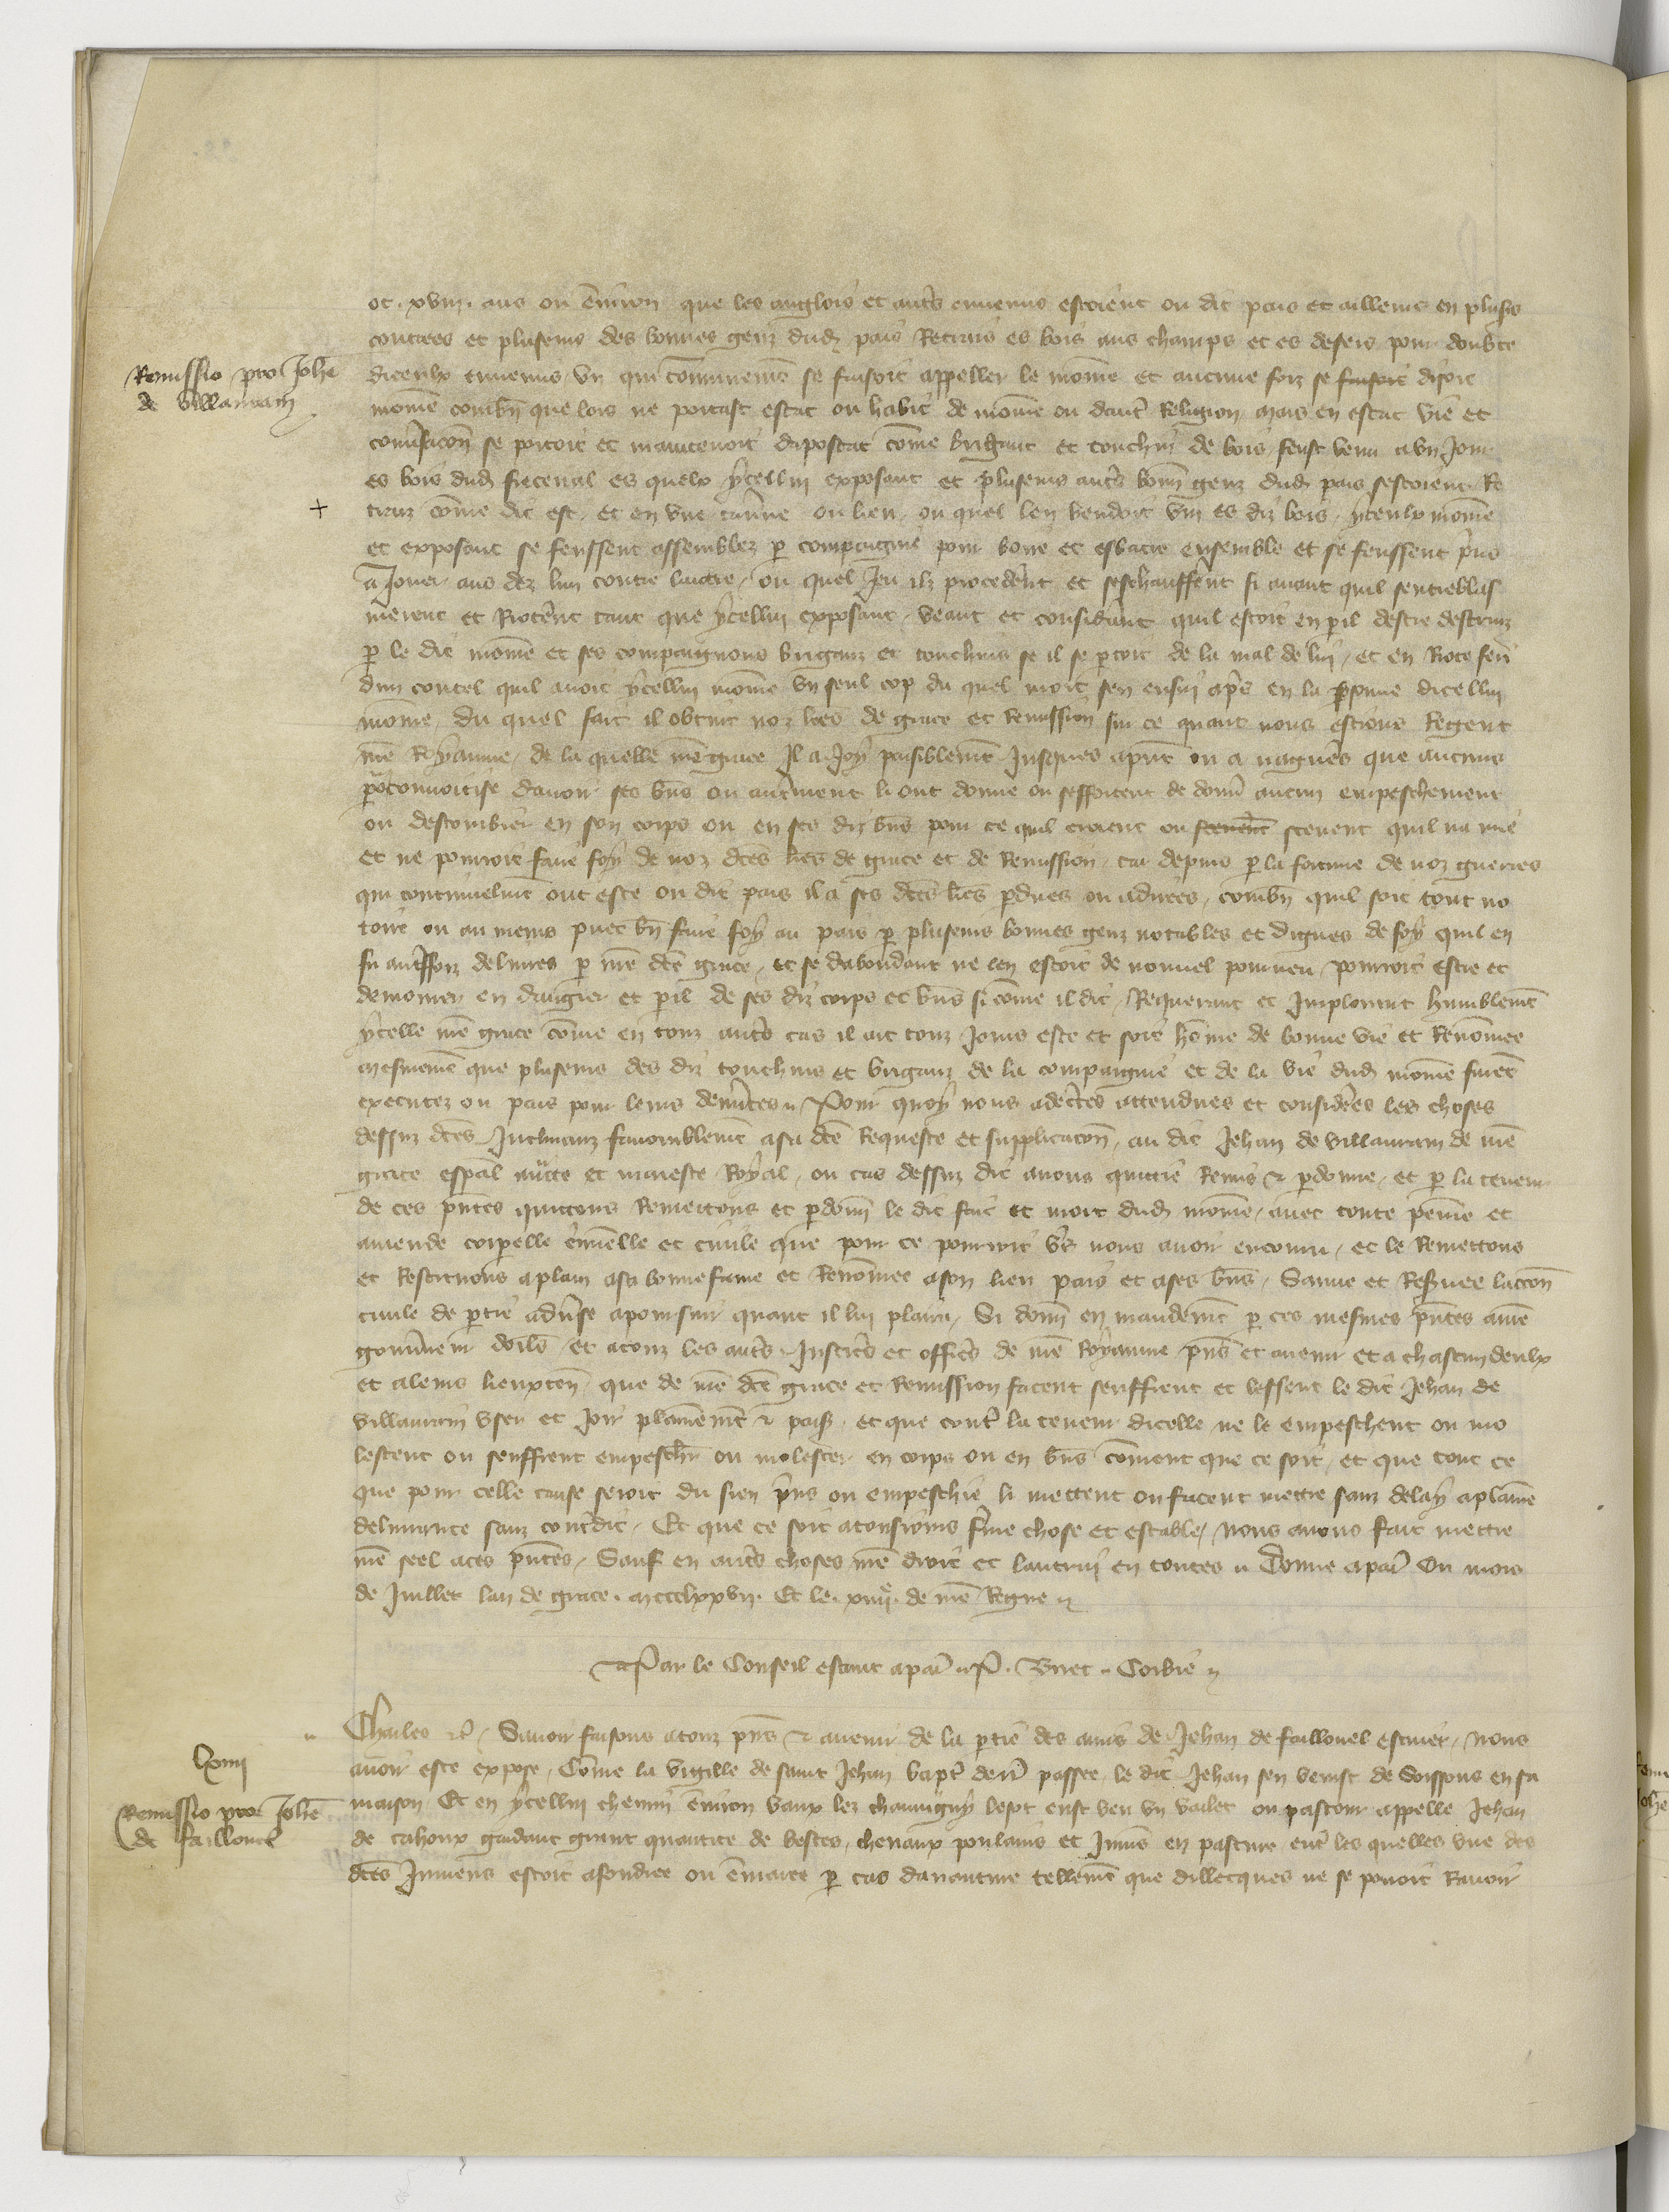 ot .xviij. ans ou environ que les anglois et autres ennemis estoient ou dit pais et ailleurs en plusrs
contrees et pluseurs des bonnes genz dud pais Retraiz es bois aus champs et es desers pour doubte
Remissio pro Johe
de Villauram
diceulx ennemis, un qui communement se faisoit appeller le moine et aucune foiz se faisoit disoit
moine combn que lors ne portast estat ou habit de moine ou dautre Religion, mais en estat vie et
conversacion se portoit et maintenoit dapostat come brigant et touchin de bois, feust venu a un Jour
es bois dud es quelx ycellui exposant et pluseurs autres bonn genz dud pais sestoient Re
+
traiz come dit est, et en une taverne ou lieu, ou quel len vendoit vin es diz bois, yceulx moine
et exposant se feussent assemblez p compaignie pour boire et esbatre ensemble et se feussent prins
a Jouer aus dez lun contre lautre, ou quel Jeu ilz procederent et seschaufferent si avant quil sentreblas
merent et Rioterent tant que ycellui exposant, veant et considerant quil estoit en peril destre destruiz
p le dit moine et ses compaignons briganz et touchins se il se partoit de la mal de lui, et en Riote feri
dun coutel quil avoit ycellui moine un seul cop du quel mort sen ensui apres en la personne dicellui
moine, du quel fait il obtint noz lres de grace et Remission sur ce quant nous estions Regent
nre Royaume, de la quelle nre grace Il a Joy paisiblement Jusques a pnt ou a nagueres que aucuns
p convoitise davoir ses biens ou autrement li ont donne ou sefforcent de donner aucun empeschement
ou destourbier en son corps ou en ses diz biens pour ce quil croient ou scevent quil na mie
et ne pourroit faire foy de noz dictes lres de grace et de Remission, car depuis p la fortune de noz guerres
qui continuelment ont este ou dit pais il a ses dictes lres perdues ou adirees, combn quil soit tout no
toire ou au moins puet bn faire foy au pais p pluseurs bonnes genz notables et dignes de foy quil en
fu autreffoiz delivres p nre dicte grace, et se dabondant ne len estoit de nouvel pourveu, pourroit estre et
demourer en dangier et peril de ses diz corps et biens si come il dit, Requerant et Implorant humblement
ycelle nre grace come en touz autres cas il ait touz Jours este et soit home de bonne vie et Renommee
mesmement que pluseurs des diz touchins et briganz de la compaignie et de la vie dud moine furent
executez ou pais pour leurs demerites Pour quoy nous adecertes attendues et considerees les choses
dessuz dictes Inclinanz favorablement a sa dicte Requeste et supplicacion, au dit Jehan de villauram de nre
grace especial auctte et maieste Royal, ou cas dessuz dit avons quittie Remis et perdonne, et p la teneur
de ces pntes quittons Remettons et perdonn le dit fait et mort dud moine, avec toute peine et
amende corporelle criminelle et civile que pour ce pourroit vers nous avoir encouru, et le Remettons
et Restituons a plain a sa bonne fame et Renommee a son lieu pais et a ses biens, Sauve et Reservee laccion
civile de partie adverse a poursuir quant il lui plaira, Si donn en mandement p ces mesmes pntes au
gouverneur et a touz les autres Justiciers et officiers de nre Royaume pns et avenir et a chascun deulx
et a leurs lieuxten, que de nre dicte grace et Remission facent seuffrent et lessent le dit Jehan de
villauram user et Joir plainement et paisi, et que contre la teneur dicelle ne le empeschent ou mo
lestent ou seuffrent empeschier ou molester en corps ou en biens coment que ce soit, et que tout ce
que pour celle cause seroit du sien prins ou empeschie li mettent ou facent mettre sanz delay a plaine
delivrance sanz contredit, Et que ce soit a tousjours ferme chose et estable, Nous avons fait mettre
nre seel a ces pntes, Sauf en autres choses nre droit et lautrui en toutes Donne a paris Ou mois
de Juillet lan de grace .mccclxxvij. Et le .xiiije. de nre Regne

Par le Conseil estant a paris P. Buret Corbie

Charles etc. Savoir faisons a touz pns et avenir de la partie des amis de Jehan de faillouel escuier, Nous
lxiiij
avoir este expose, Come la vigille de saint Jehan bapte derr passee, le dit Jehan sen venist de Soissons en sa
Remissio pro Johe
de faillouel
maison Et en ycellui chemin environ vaux lez chauvigny lesot eust veu un vallet ou pastour appelle Jehan
de cahoux gardant grant quantite de bestes, chevaux poulains et Jumens en pasture entre les quelles une des
dictes Jumens estoit afondree ou enmaree p cas daventure tellement que dillecques ne se povoit Ravoir